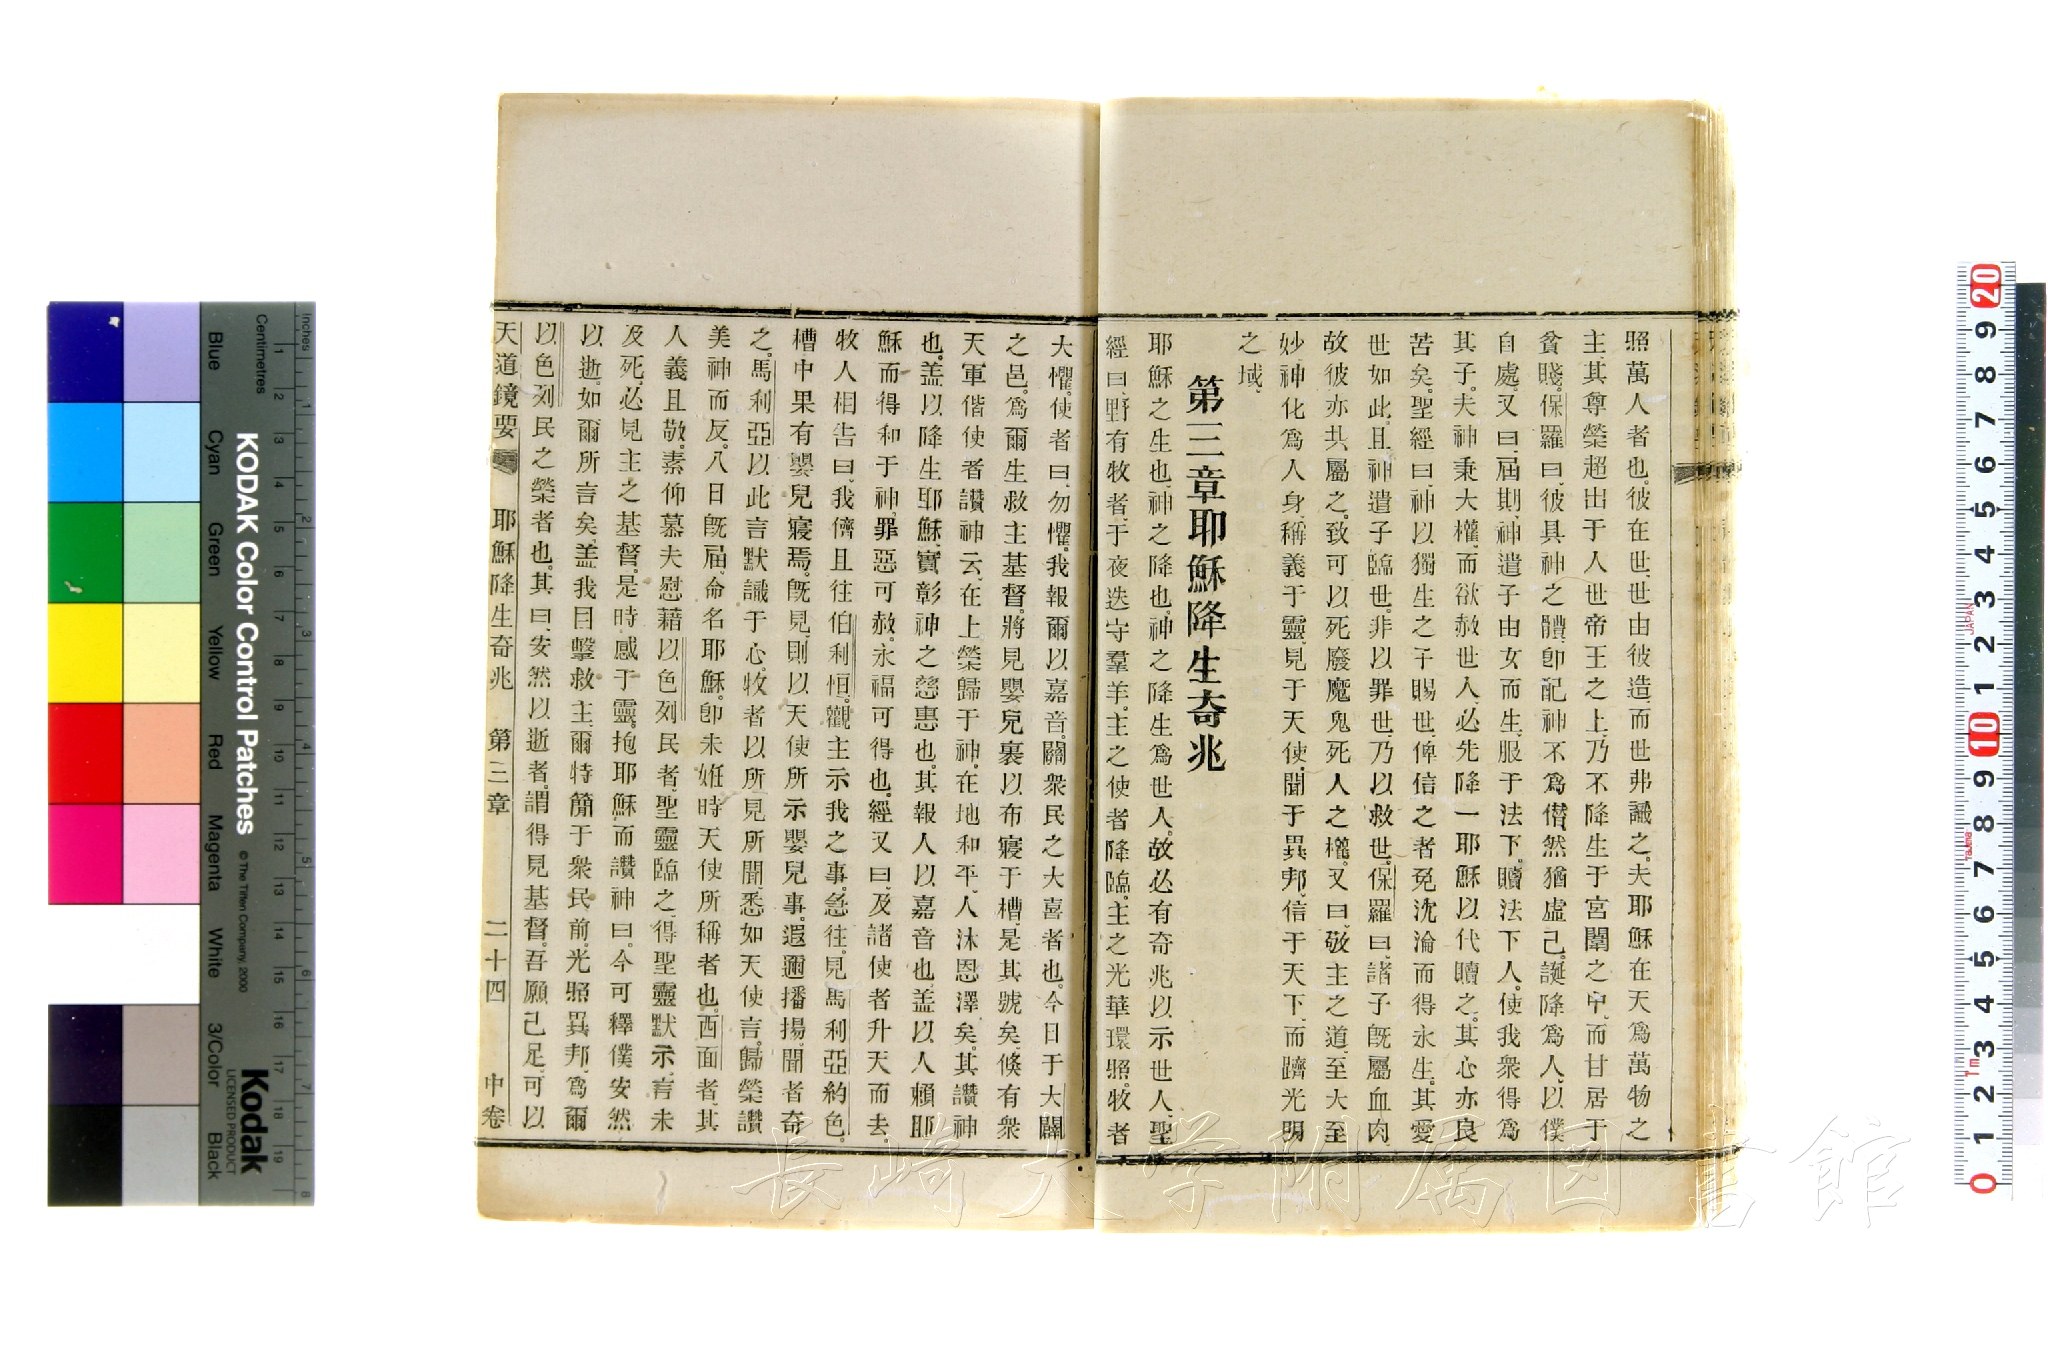 照萬人者也。彼在世、世由彼造、而世弗識之。夫耶穌在天爲萬物之
主、其尊榮超出于人世帝王之上、乃不降生于宮闈之中、而甘居于
貧賤。保羅曰、彼具神之體、卽配神不爲僣、然猶虛己、誕降爲人、以僕
自處。又曰、屆期、神遣子由女而生、服于法下、贖法下人、使我衆得爲
其子。夫神秉大權、而欲赦世人、必先降一耶穌以代贖之。其心亦良
苦矣。聖經曰、神以獨生之子賜世、俾信之者免沈淪而得永生。其愛
世如此。且神遣子臨世、非以罪世、乃以救世。保羅曰、諸子旣屬血肉、
故彼亦共屬之。致可以死廢魔鬼死人之權。又曰、敬主之道、至大至
妙、神化爲人身、稱義于靈、見于天使、聞于異邦、信于天下、而躋光明
之域、
第三章耶穌降生奇兆
耶穌之生也、神之降也、神之降生爲世人。故必有奇兆以示世人。聖
經曰、野有牧者、于夜迭守羣羊。主之使者降臨。主之光華環照。牧者
大懼。使者曰、勿懼。我報爾以嘉音。關衆民之大喜者也。今日于大闢
之邑、爲爾生救主基督。將見嬰兒裹以布寢于槽、是其號矣。倏有衆
天軍偕使者讚神云、在上榮歸于神、在地和平、人沐恩澤矣。其讚神
也、盖以降生耶穌、實彰神之慈惠也。其報人以嘉音也、盖以人賴耶
穌而得和于神、罪惡可赦。永福可得也。經又曰、及諸使者升天而去
牧人相告曰、我儕且往伯利恒。觀主示我之事。急往。見馬利亞約色。
槽中果有嬰兒寢焉。旣見、則以天使所示嬰兒事。遐邇播揚、聞者奇
之。馬利亞以此言默識于心。牧者以所見所聞、悉如天使言。歸榮讚
美神而反。八日旣屆、命名耶穌。卽未姙時天使所稱者也。西面者、其
人義且敬。素仰慕夫慰藉以色列民者。聖靈臨之、得聖靈默示、言未
及死、必見主之基督。是時、感于靈。抱耶穌而讚神曰、今可釋僕安然
以逝、如爾所言矣。盖我目擊救主、爾特簡于衆民前。光照異邦、爲爾
以色列民之榮者也。其曰、安然以逝者、謂得見基督、吾願已足、可以
天道鏡要 耶穌降生奇兆 第三章 二十四 中卷
長崎大学附属図書館
KODAK Color Control Patches
© The Tiffen Company, 2000
Kodak
LICENSED PRODUCT
Inches
Centimetres
Blue
Cyan
Green
Yellow
Red
Magenta
White
3/Color
Black
JAPAN